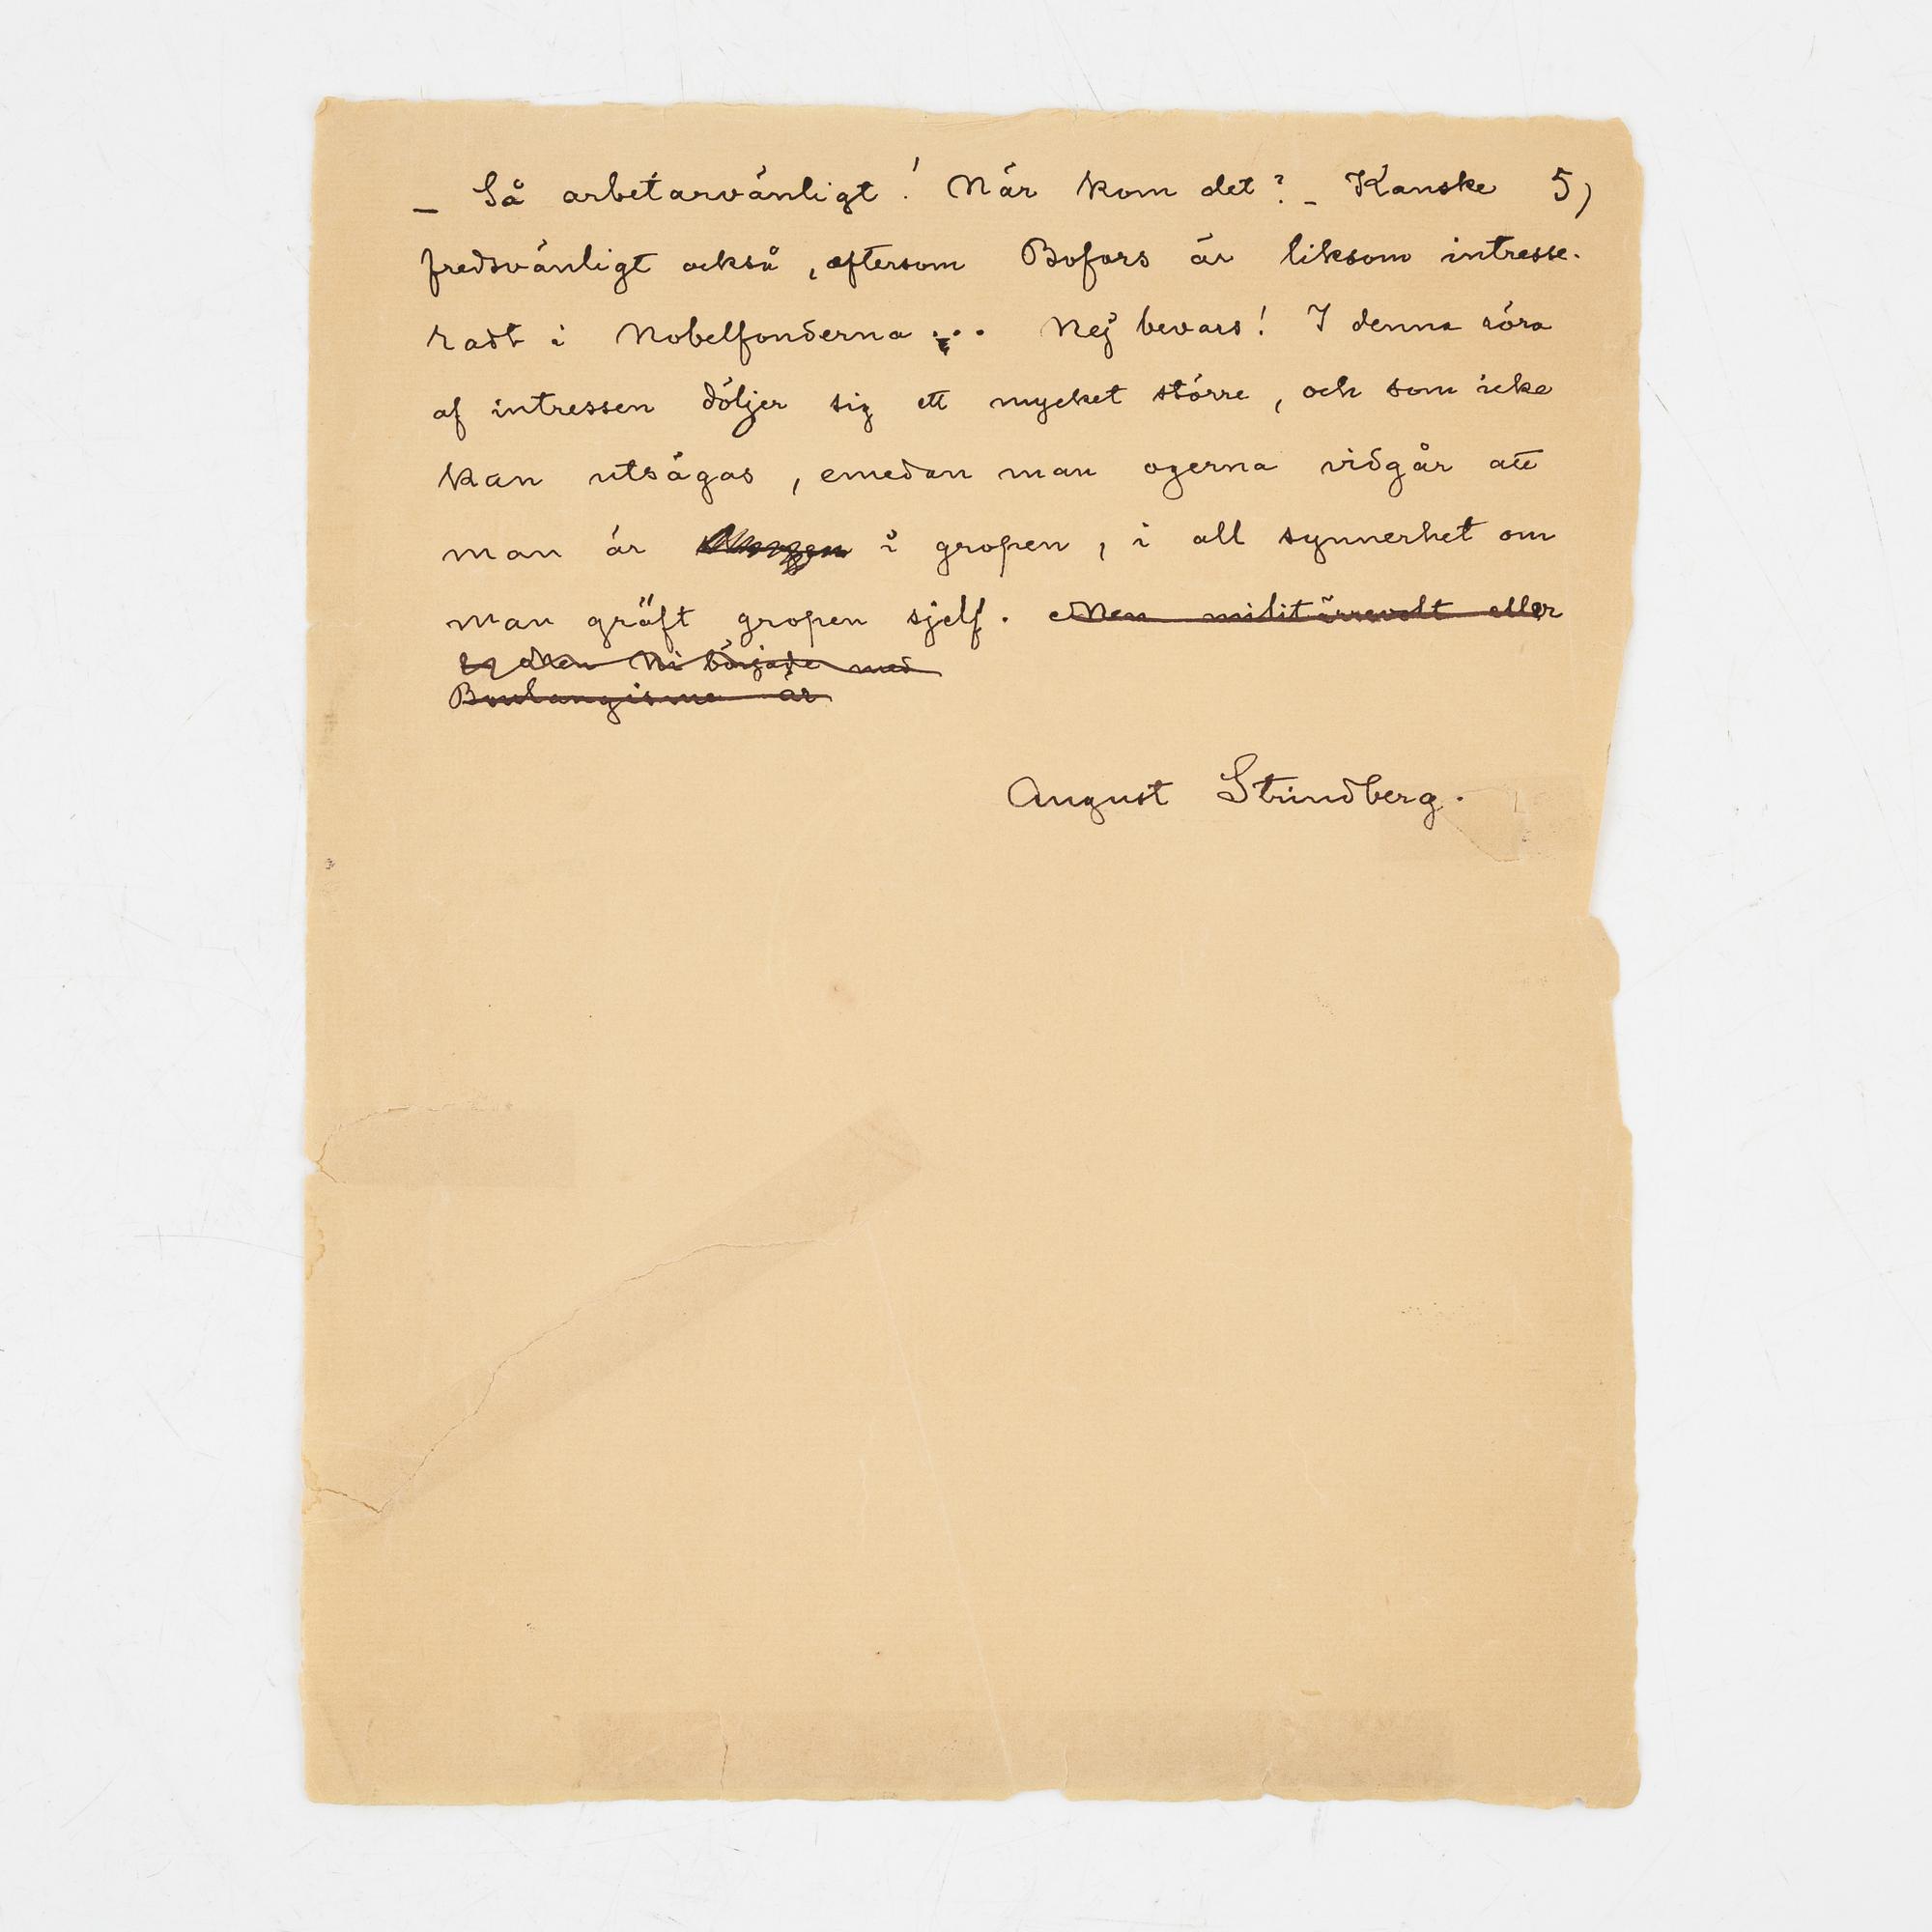 – Så arbetarvänligt! När kom det? – Kanske 5)
fredsvänligt också, eftersom Bofors är liksom intresse-
radt i Nobelfonderna... Nej bevars! I denna röra
af intressen döljer sig ett mycket större, och som icke
kan utsägas, emedan man ogerna vidgår att
man är i gropen, i all synnerhet om
man gräft gropen sjelf. Men militärrevolt eller
Men Ni började med
Boulangisme är
August Strindberg.